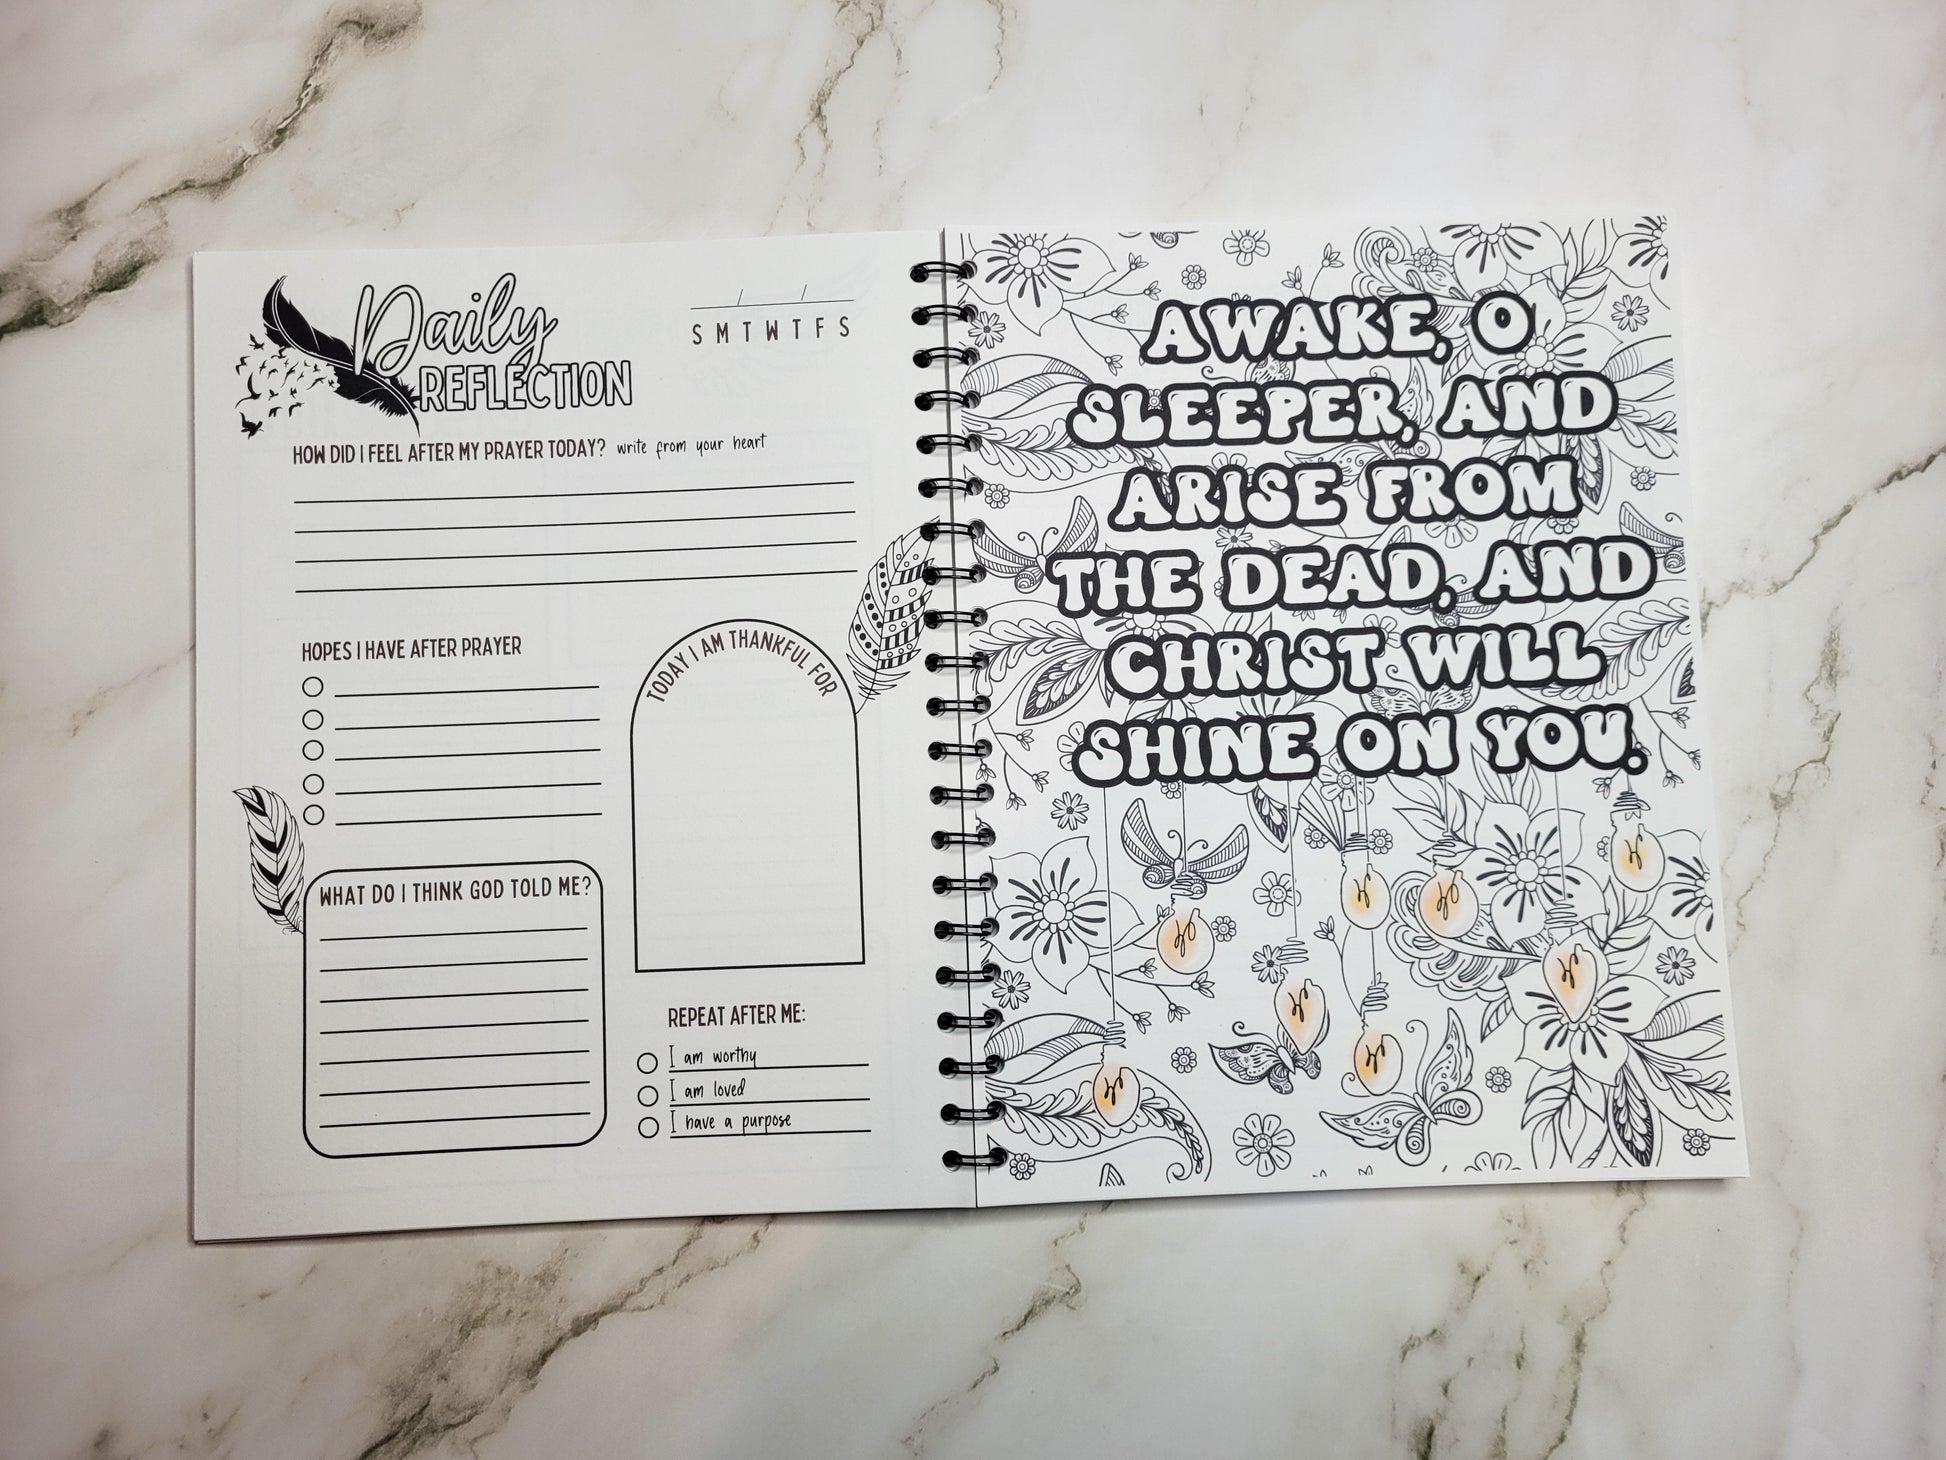 Daily
REFLECTION
S M T W T F S
HOW DID I FEEL AFTER MY PRAYER TODAY? write from your heart
HOPES I HAVE AFTER PRAYER
TODAY I AM THANKFUL FOR
WHAT DO I THINK GOD TOLD ME?
REPEAT AFTER ME:
I am worthy
I am loved
I have a purpose
AWAKE, O
SLEEPER, AND
ARISE FROM
THE DEAD, AND
CHRIST WILL
SHINE ON YOU.